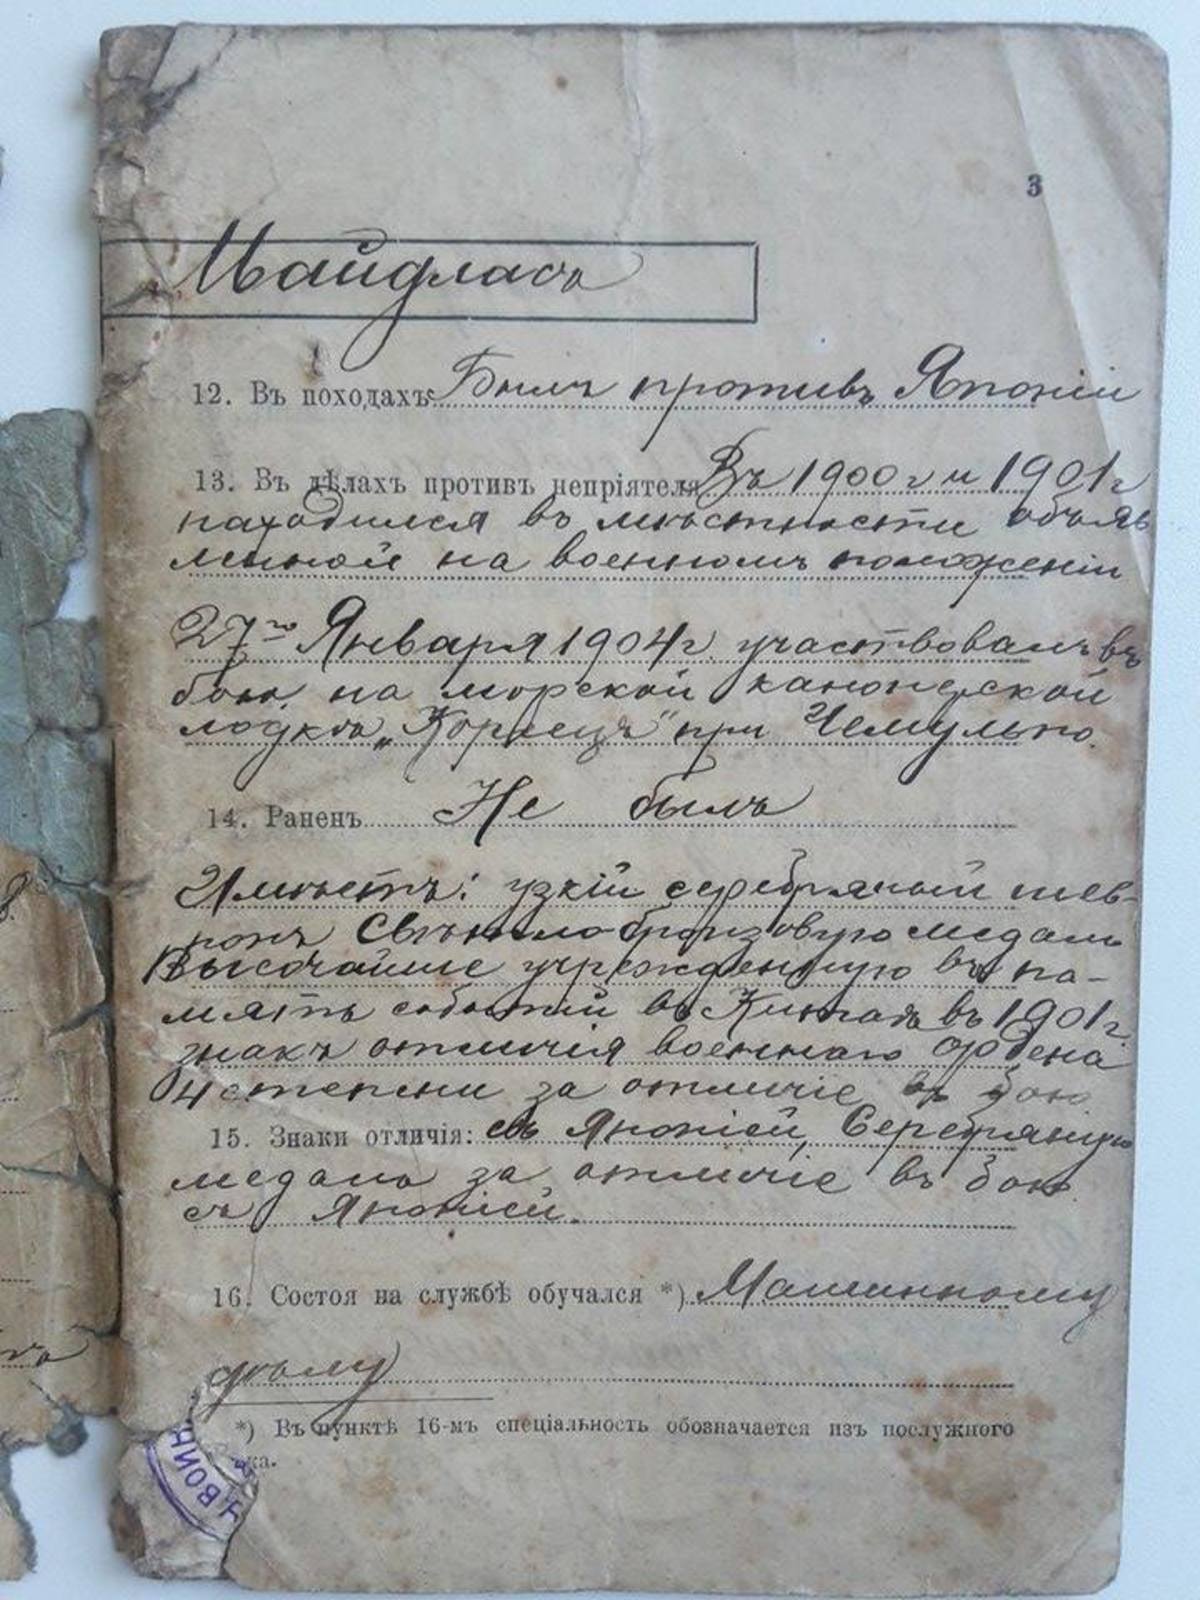 3
Майдласъ
12. Въ походахъ Былъ противъ Японіи
13. Въ дѣлахъ противъ непріятеля Въ 1900 г и 1901 г
находился въ мѣстности объяв
ленной на военномъ положеніи
27го Января 1904 г. участвовалъ въ
бою на морской канонерской
лодкѣ „Кореецъ" при Чемульпо.
14. Раненъ Не былъ
Имѣетъ: узкій серебряный шев-
ронъ Свѣтло-бронзовую медаль
Высочайше учрежденную въ па-
мять событій въ Китаѣ въ 1901 г.
знакъ отличія военнаго ордена
4 степени за отличіе въ бою
15. Знаки отличія: съ Японіей, Серебряную
медаль за отличіе въ бою
съ Японіей.
16. Состоя на службѣ обучался *) Машинному
дѣлу
*) Въ пунктѣ 16-мъ спеціальность обозначается изъ послужного
ка.
ВОИН